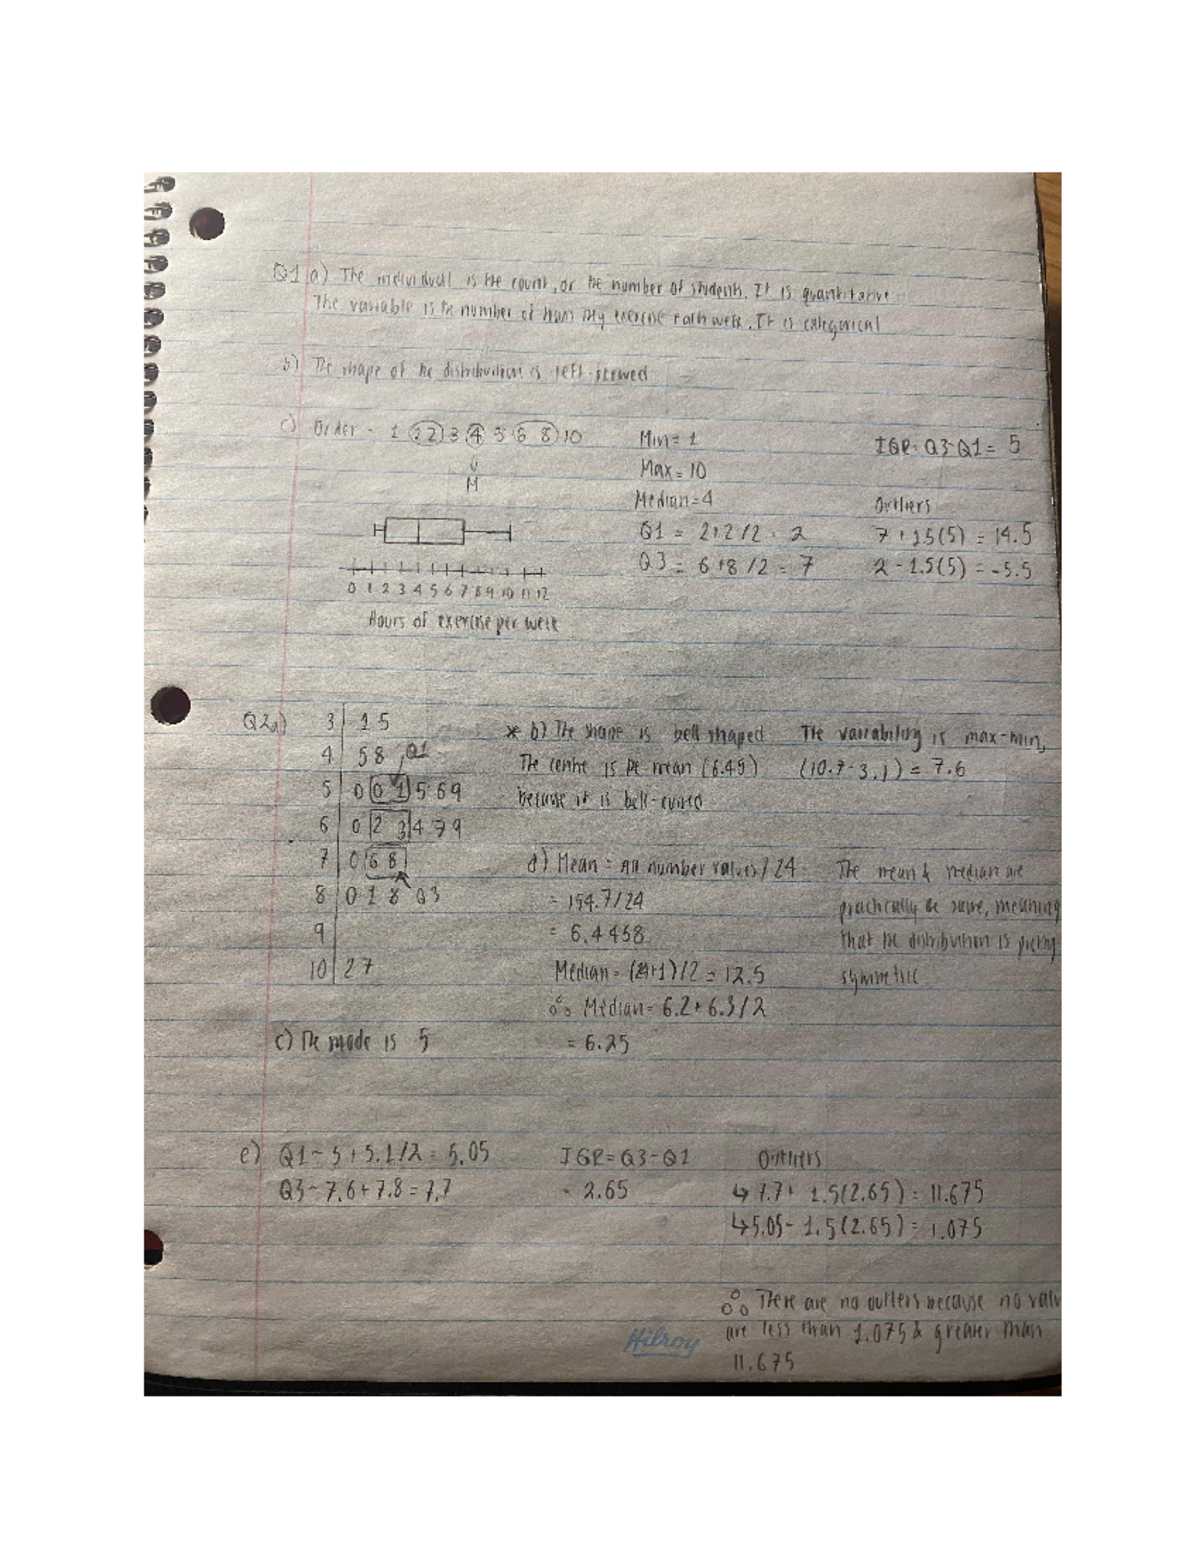 Q1 a) The individual is the count, or the number of students. It is quantitative.
The variable is the number of hours they exercise each week. It is categorical
b) The shape of the distribution is left-skewed
c) Order - 1 2 2 3 4 5 6 8 10
M
Min = 1
Max = 10
Median = 4
Q1 = 2+2/2 = 2
Q3 = 6+8/2 = 7
IQR = Q3-Q1 = 5
Outliers
7+1.5(5) = 14.5
2-1.5(5) = -5.5
0 1 2 3 4 5 6 7 8 9 10 11 12
Hours of exercise per week
Q2a)
3 | 1 5
4 | 5 8 Q1
5 | 0 0 1 5 6 9
6 | 0 2 3 4 7 9
7 | 0 6 8
8 | 0 1 8 Q3
9 |
10 | 2 7
* b) The shape is bell shaped
The centre is the mean (6.45)
because it is bell-curved
The variability is max-min,
(10.7-3.1) = 7.6
c) The mode is 5
d) Mean = All number values / 24
= 154.7/24
= 6.4458
Median = (24+1)/2 = 12.5
∴ Median = 6.2+6.3/2
= 6.25
The mean & median are
practically the same, meaning
that the distribution is pretty
symmetric
e) Q1 - 5+5.1/2 = 5.05
Q3 - 7.6+7.8 = 7.7
IQR = Q3-Q1
= 2.65
Outliers
↳ 7.7+ 1.5(2.65) = 11.675
↳ 5.05- 1.5(2.65) = 1.075
∴ There are no outliers because no valu
are less than 1.075 & greater than
11.675
Hilroy